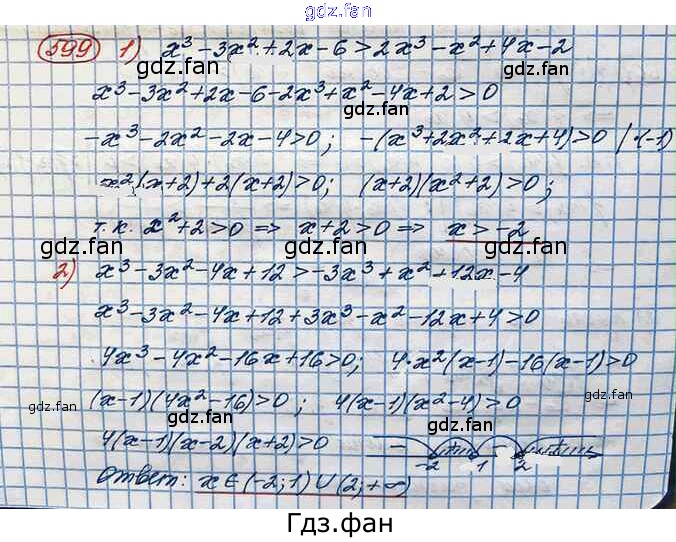 gdz.fan
gdz.fan gdz.fan
599 1) x³-3x²+2x-6>2x³-x²+4x-2
gdz.fan gdz.fan
x³-3x²+2x-6-2x³+x²-4x+2>0
gdz.fan
-x³-2x²-2x-4>0; -(x³+2x²+2x+4)>0 /·(-1)
gdz.fan gdz.fan
x²(x+2)+2(x+2)>0; (x+2)(x²+2)>0;
т.к. x²+2>0 => x+2>0 => x>-2
gdz.fan gdz.fan gdz.fan
2) x³-3x²-4x+12>-3x³+x²+12x-4
gdz.fan gdz.fan
x³-3x²-4x+12+3x³-x²-12x+4>0
4x³-4x²-16x+16>0; 4·x²(x-1)-16(x-1)>0
gdz.fan gdz.fan gdz.fan
(x-1)(4x²-16)>0; 4(x-1)(x²-4)>0
gdz.fan gdz.fan
4(x-1)(x-2)(x+2)>0 - -2 1 2
Ответ: x∈(-2;1)∪(2;+∞)
gdz.fan gdz.fan
Гдз.фан